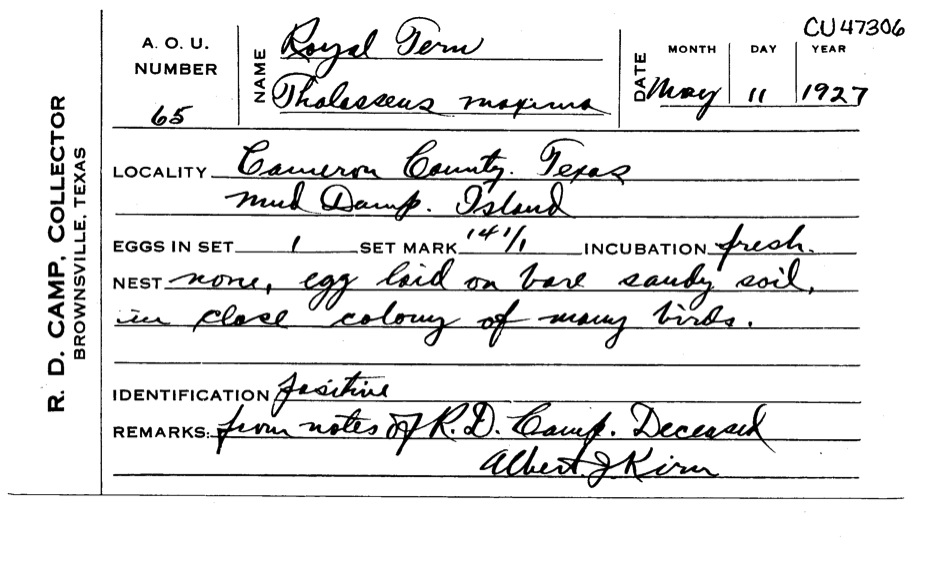 CU47306
A. O. U.
NUMBER
65
NAME
Royal Tern
Thalasseus maxima
DATE
MONTH DAY YEAR
May 11 1927
R. D. CAMP, COLLECTOR
BROWNSVILLE, TEXAS
LOCALITY Cameron County. Texas
Mud Dump. Island
EGGS IN SET 1 SET MARK 141/1 INCUBATION fresh.
NEST none, egg laid on bare sandy soil,
in close colony of many birds.
IDENTIFICATION positive
REMARKS: from notes of R.D. Camp. Deceased
Albert J Kirn